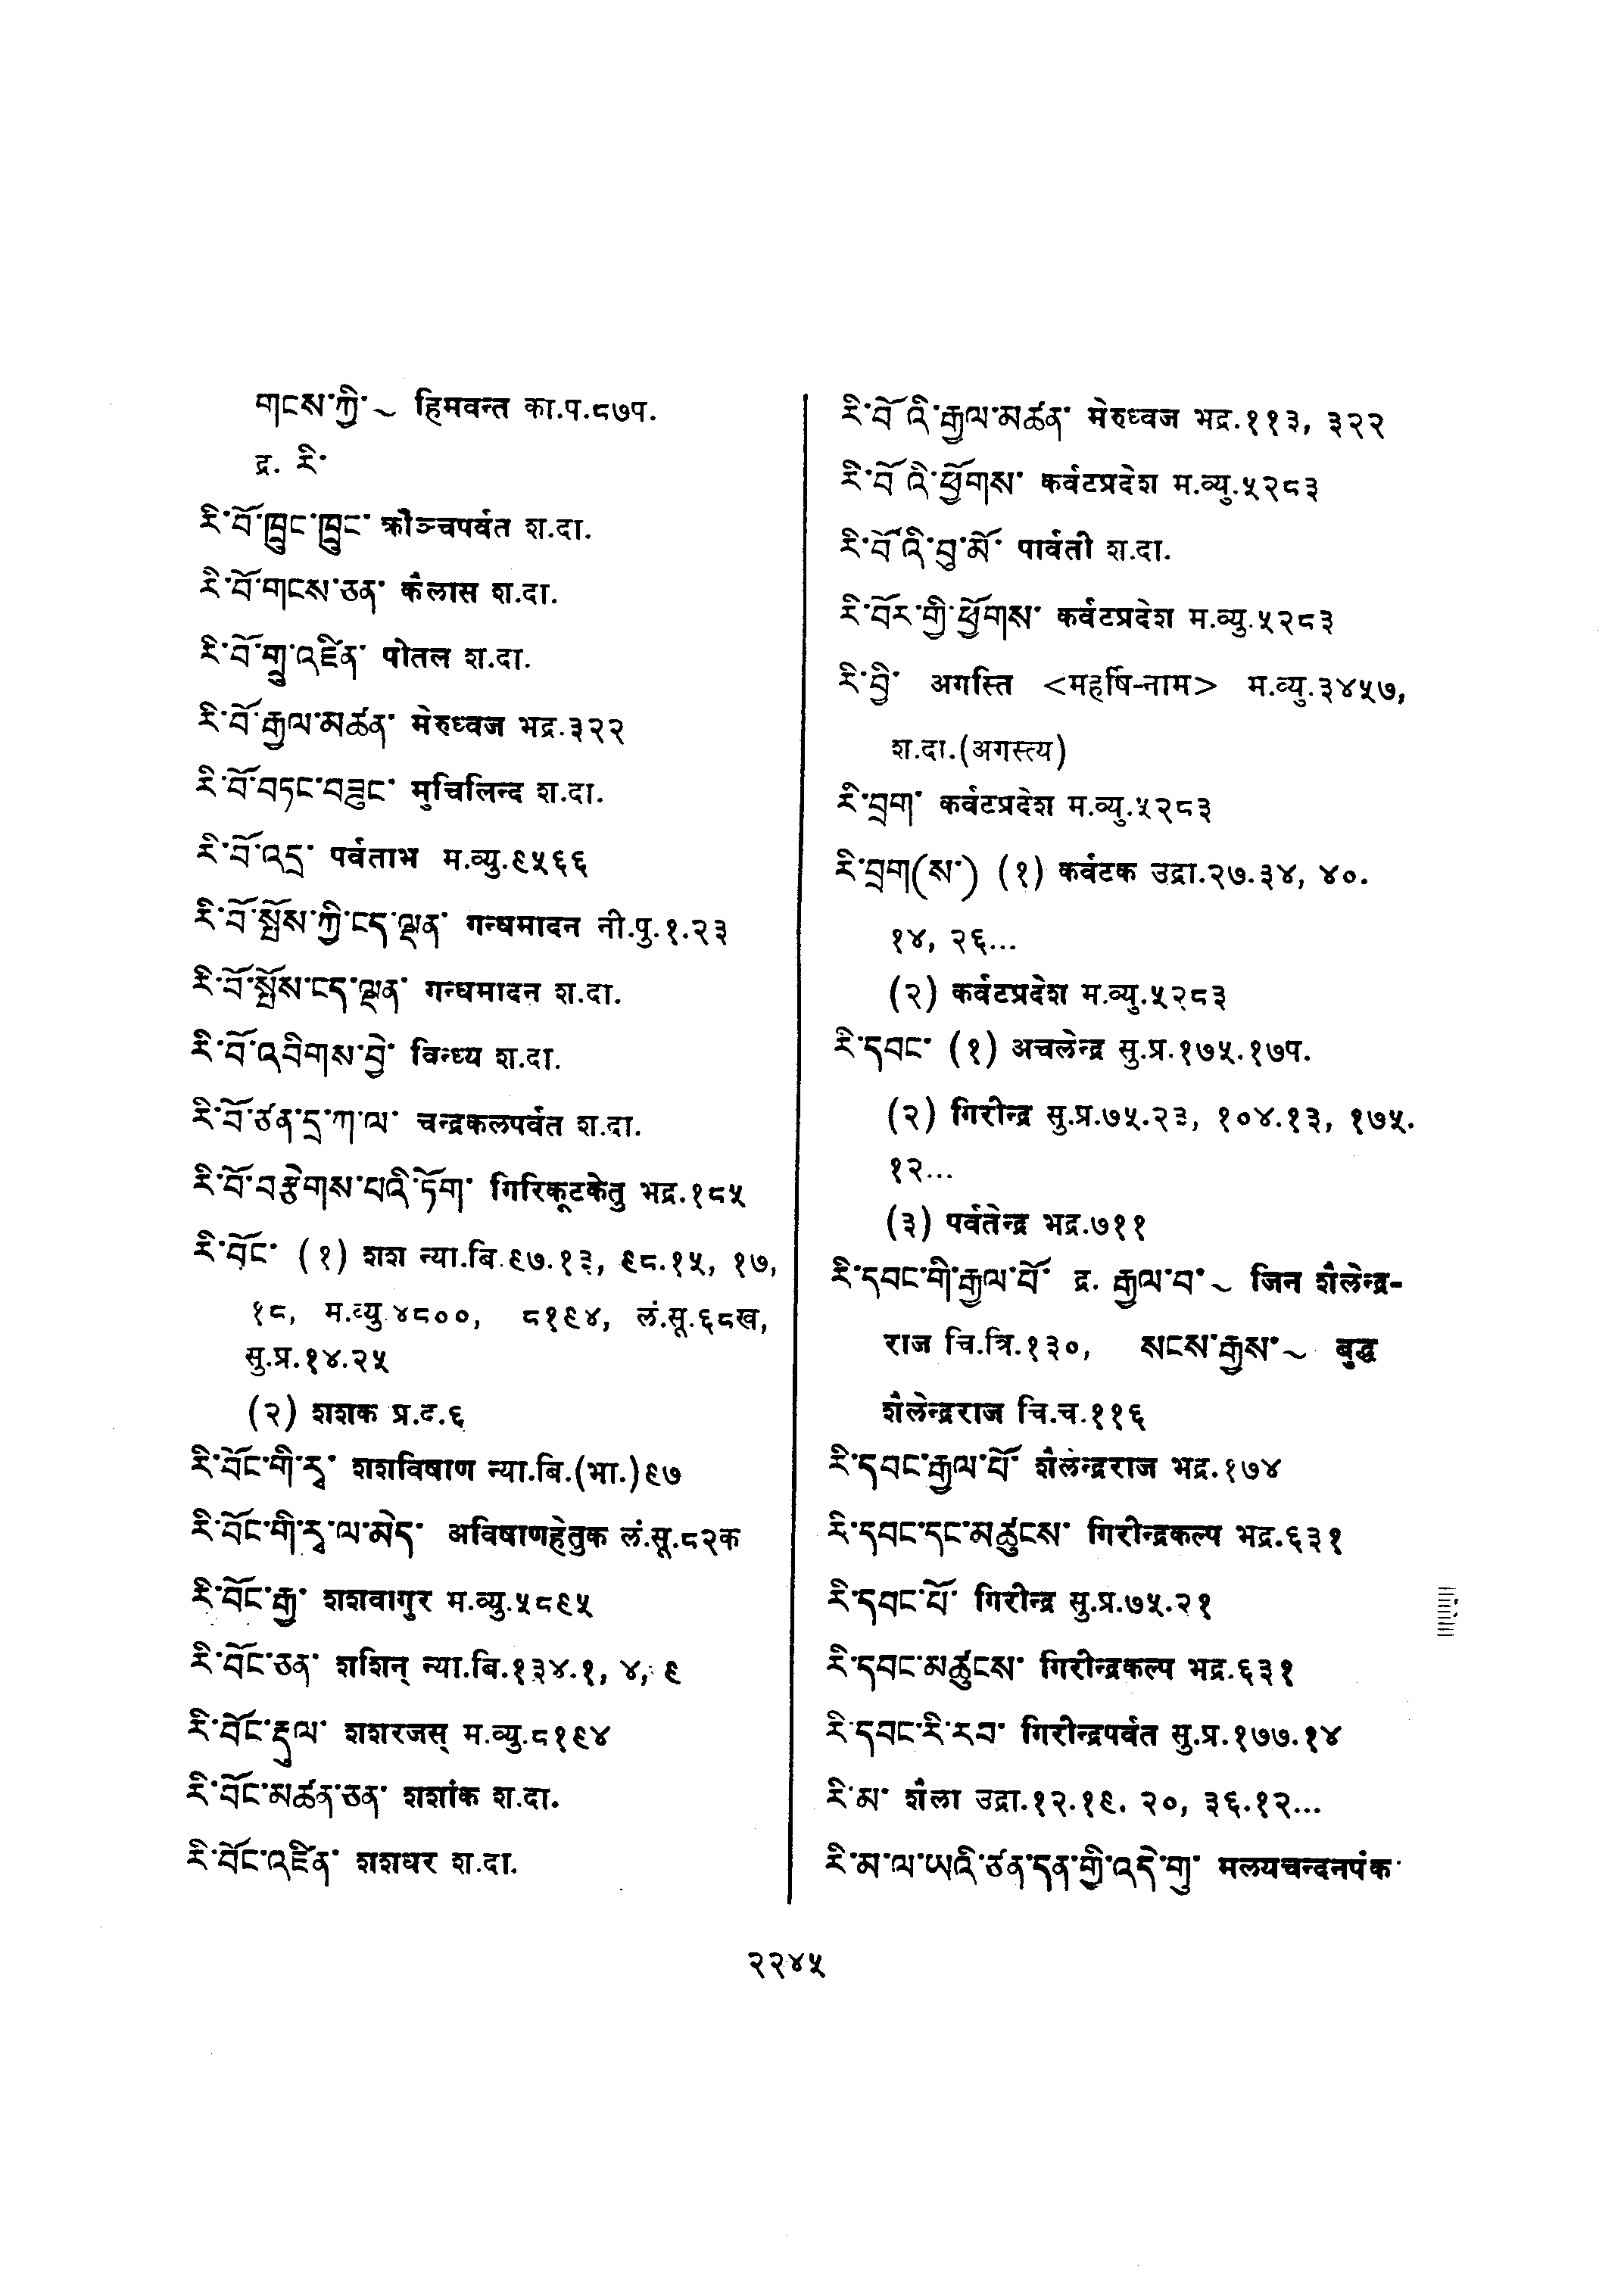 གངས་ཀྱི་~ हिमवन्त का.प.८७प.
द्र. རི་
རི་བོ་ཁྲུང་ཁྲུང་ क्रौञ्चपर्वत श.दा.
རི་བོ་གངས་ཅན་ कैलास श.दा.
རི་བོ་གྲུ་འཛིན་ पोतल श.दा.
རི་བོ་རྒྱལ་མཚན་ मेरुध्वज भद्र.३२२
རི་བོ་བཏང་བཟུང་ मुचिलिन्द श.दा.
རི་བོ་འདྲ་ पर्वताभ म.व्यु.९५६६
རི་བོ་སྤོས་ཀྱི་ངད་ལྡན་ गन्धमादन नी.पु.१.२३
རི་བོ་སྤོས་ངད་ལྡན་ गन्धमादन श.दा.
རི་བོ་འབིགས་བྱེ་ विन्ध्य श.दा.
རི་བོ་ཙན་དྲ་ཀ་ལ་ चन्द्रकलपर्वत श.दा.
རི་བོ་བརྩེགས་པའི་ཏོག་ गिरिकूटकेतु भद्र.१८५
རི་བོང་ (१) शश न्या.बि.९७.१३, ९८.१५, १७,
१८, म.व्यु.४८००, ८१९४, लं.सू.६८ख,
सु.प्र.१४.२५
(२) शशक प्र.द.६
རི་བོང་གི་རྭ་ शशविषाण न्या.बि.(भा.)९७
རི་བོང་གི་རྭ་ལ་མེད་ अविषाणहेतुक लं.सू.८२क
རི་བོང་རྒྱ་ शशवागुर म.व्यु.५८९५
རི་བོང་ཅན་ शशिन् न्या.बि.१३४.१, ४, ९
རི་བོང་རྡུལ་ शशरजस् म.व्यु.८१९४
རི་བོང་མཚན་ཅན་ शशांक श.दा.
རི་བོང་འཛིན་ शशधर श.दा.
རི་བོ་འི་རྒྱལ་མཚན་ मेरुध्वज भद्र.११३, ३२२
རི་བོ་འི་ཕྱོགས་ कर्वटप्रदेश म.व्यु.५२८३
རི་བོ་འི་བུ་མོ་ पार्वती श.दा.
རི་བོར་གྱི་ཕྱོགས་ कर्वटप्रदेश म.व्यु.५२८३
རི་བྱི་ अगस्ति <महर्षि-नाम> म.व्यु.३४५७,
श.दा.(अगस्त्य)
རི་བྲག་ कर्वटप्रदेश म.व्यु.५२८३
རི་བྲག(ས་) (१) कर्वटक उद्रा.२७.३४, ४०.
१४, २६...
(२) कर्वटप्रदेश म.व्यु.५२८३
རི་དབང་ (१) अचलेन्द्र सु.प्र.१७५.१७प.
(२) गिरीन्द्र सु.प्र.७५.२३, १०४.१३, १७५.
१२...
(३) पर्वतेन्द्र भद्र.७११
རི་དབང་གི་རྒྱལ་པོ་ द्र. རྒྱལ་བ་~ जिन शैलेन्द्र-
राज चि.त्रि.१३०, སངས་རྒྱས་~ बुद्ध
शैलेन्द्रराज चि.च.११६
རི་དབང་རྒྱལ་པོ་ शैलेन्द्रराज भद्र.१७४
རི་དབང་དང་མཚུངས་ गिरीन्द्रकल्प भद्र.६३१
རི་དབང་པོ་ गिरीन्द्र सु.प्र.७५.२१
རི་དབང་མཚུངས་ गिरीन्द्रकल्प भद्र.६३१
རི་དབང་རི་རབ་ गिरीन्द्रपर्वत सु.प्र.१७७.१४
རི་མ་ शैला उद्रा.१२.१९. २०, ३६.१२...
རི་མ་ལ་ཡའི་ཙན་དན་གྱི་འདེ་གུ་ मलयचन्दनपंक
२२४५